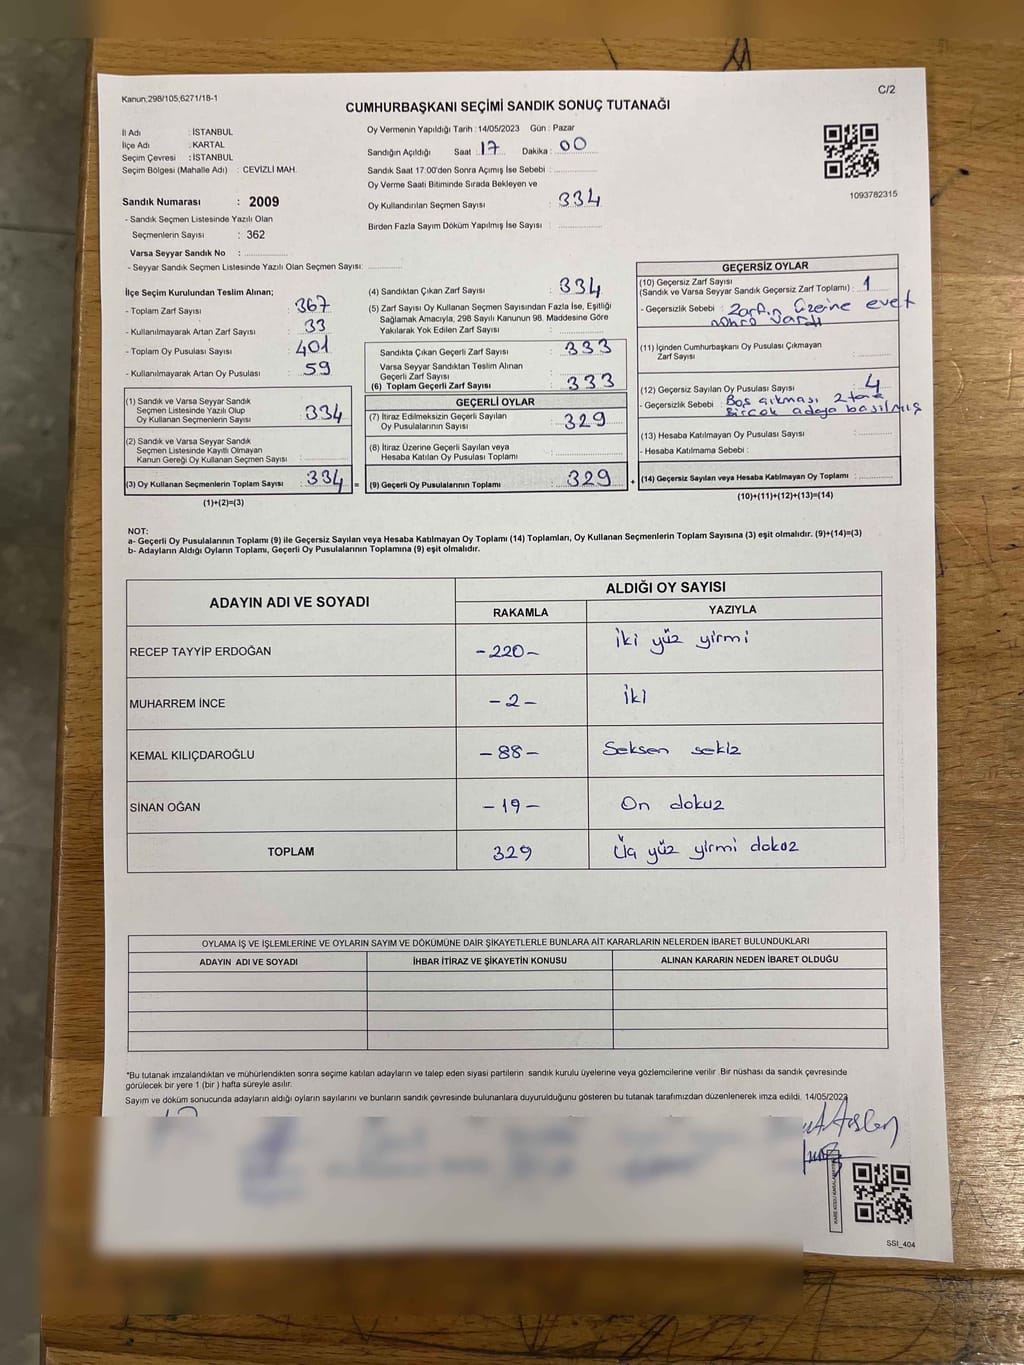 Kanun,298/105,6271/18-1
C/2
CUMHURBAŞKANI SEÇİMİ SANDIK SONUÇ TUTANAĞI
İl Adı : İSTANBUL
İlçe Adı : KARTAL
Seçim Çevresi : İSTANBUL
Seçim Bölgesi (Mahalle Adı) : CEVİZLİ MAH.
Sandık Numarası : 2009
- Sandık Seçmen Listesinde Yazılı Olan
Seçmenlerin Sayısı : 362
Varsa Seyyar Sandık No :
- Seyyar Sandık Seçmen Listesinde Yazılı Olan Seçmen Sayısı:
Oy Vermenin Yapıldığı Tarih : 14/05/2023 Gün : Pazar
Sandığın Açıldığı Saat : 17 Dakika : 00
Sandık Saat 17:00'den Sonra Açımış İse Sebebi :
Oy Verme Saati Bitiminde Sırada Bekleyen ve
Oy Kullandırılan Seçmen Sayısı : 334
Birden Fazla Sayım Döküm Yapılmış İse Sayısı :
1093782315
İlçe Seçim Kurulundan Teslim Alınan;
- Toplam Zarf Sayısı : 367
- Kullanılmayarak Artan Zarf Sayısı : 33
- Toplam Oy Pusulası Sayısı : 401
- Kullanılmayarak Artan Oy Pusulası : 59
(1) Sandık ve Varsa Seyyar Sandık
Seçmen Listesinde Yazılı Olup
Oy Kullanan Seçmenlerin Sayısı : 334
(2) Sandık ve Varsa Seyyar Sandık
Seçmen Listesinde Kayıtlı Olmayan
Kanun Gereği Oy Kullanan Seçmen Sayısı :
(3) Oy Kullanan Seçmenlerin Toplam Sayısı : 334 =
(1)+(2)=(3)
(4) Sandıktan Çıkan Zarf Sayısı : 334
(5) Zarf Sayısı Oy Kullanan Seçmen Sayısından Fazla İse, Eşitliği
Sağlamak Amacıyla, 298 Sayılı Kanunun 98. Maddesine Göre
Yakılarak Yok Edilen Zarf Sayısı :
Sandıkta Çıkan Geçerli Zarf Sayısı : 333
Varsa Seyyar Sandıktan Teslim Alınan
Geçerli Zarf Sayısı :
(6) Toplam Geçerli Zarf Sayısı : 333
GEÇERLİ OYLAR
(7) İtiraz Edilmeksizin Geçerli Sayılan
Oy Pusulalarının Sayısı : 329
(8) İtiraz Üzerine Geçerli Sayılan veya
Hesaba Katılan Oy Pusulası Toplamı :
(9) Geçerli Oy Pusulalarının Toplamı : 329 +
GEÇERSİZ OYLAR
(10) Geçersiz Zarf Sayısı
(Sandık ve Varsa Seyyar Sandık Geçersiz Zarf Toplamı) : 1
- Geçersizlik Sebebi : Zarfın üzerine evet
mührü vardı
(11) İçinden Cumhurbaşkanı Oy Pusulası Çıkmayan
Zarf Sayısı :
(12) Geçersiz Sayılan Oy Pusulası Sayısı : 4
- Geçersizlik Sebebi : Boş çıkması 2 tane
Birçok adaya basılmış
(13) Hesaba Katılmayan Oy Pusulası Sayısı :
- Hesaba Katılmama Sebebi :
(14) Geçersiz Sayılan veya Hesaba Katılmayan Oy Toplamı :
(10)+(11)+(12)+(13)=(14)
NOT:
a- Geçerli Oy Pusulalarının Toplamı (9) ile Geçersiz Sayılan veya Hesaba Katılmayan Oy Toplamı (14) Toplamları, Oy Kullanan Seçmenlerin Toplam Sayısına (3) eşit olmalıdır. (9)+(14)=(3)
b- Adayların Aldığı Oyların Toplamı, Geçerli Oy Pusulalarının Toplamına (9) eşit olmalıdır.
ADAYIN ADI VE SOYADI
ALDIĞI OY SAYISI
RAKAMLA YAZIYLA
RECEP TAYYİP ERDOĞAN -220- İki yüz yirmi
MUHARREM İNCE -2- İki
KEMAL KILIÇDAROĞLU -88- Seksen sekiz
SİNAN OĞAN -19- On dokuz
TOPLAM 329 Üç yüz yirmi dokuz
OYLAMA İŞ VE İŞLEMLERİNE VE OYLARIN SAYIM VE DÖKÜMÜNE DAİR ŞİKAYETLERLE BUNLARA AİT KARARLARIN NELERDEN İBARET BULUNDUKLARI
ADAYIN ADI VE SOYADI İHBAR İTİRAZ VE ŞİKAYETİN KONUSU ALINAN KARARIN NEDEN İBARET OLDUĞU
*Bu tutanak imzalandıktan ve mühürlendikten sonra seçime katılan adayların ve talep eden siyasi partilerin sandık kurulu üyelerine veya gözlemcilerine verilir .Bir nüshası da sandık çevresinde
görülecek bir yere 1 (bir ) hafta süreyle asılır.
Sayım ve döküm sonucunda adayların aldığı oyların sayılarını ve bunların sandık çevresinde bulunanlara duyurulduğunu gösteren bu tutanak tarafımızdan düzenlenerek imza edildi. 14/05/2023
SSI_404